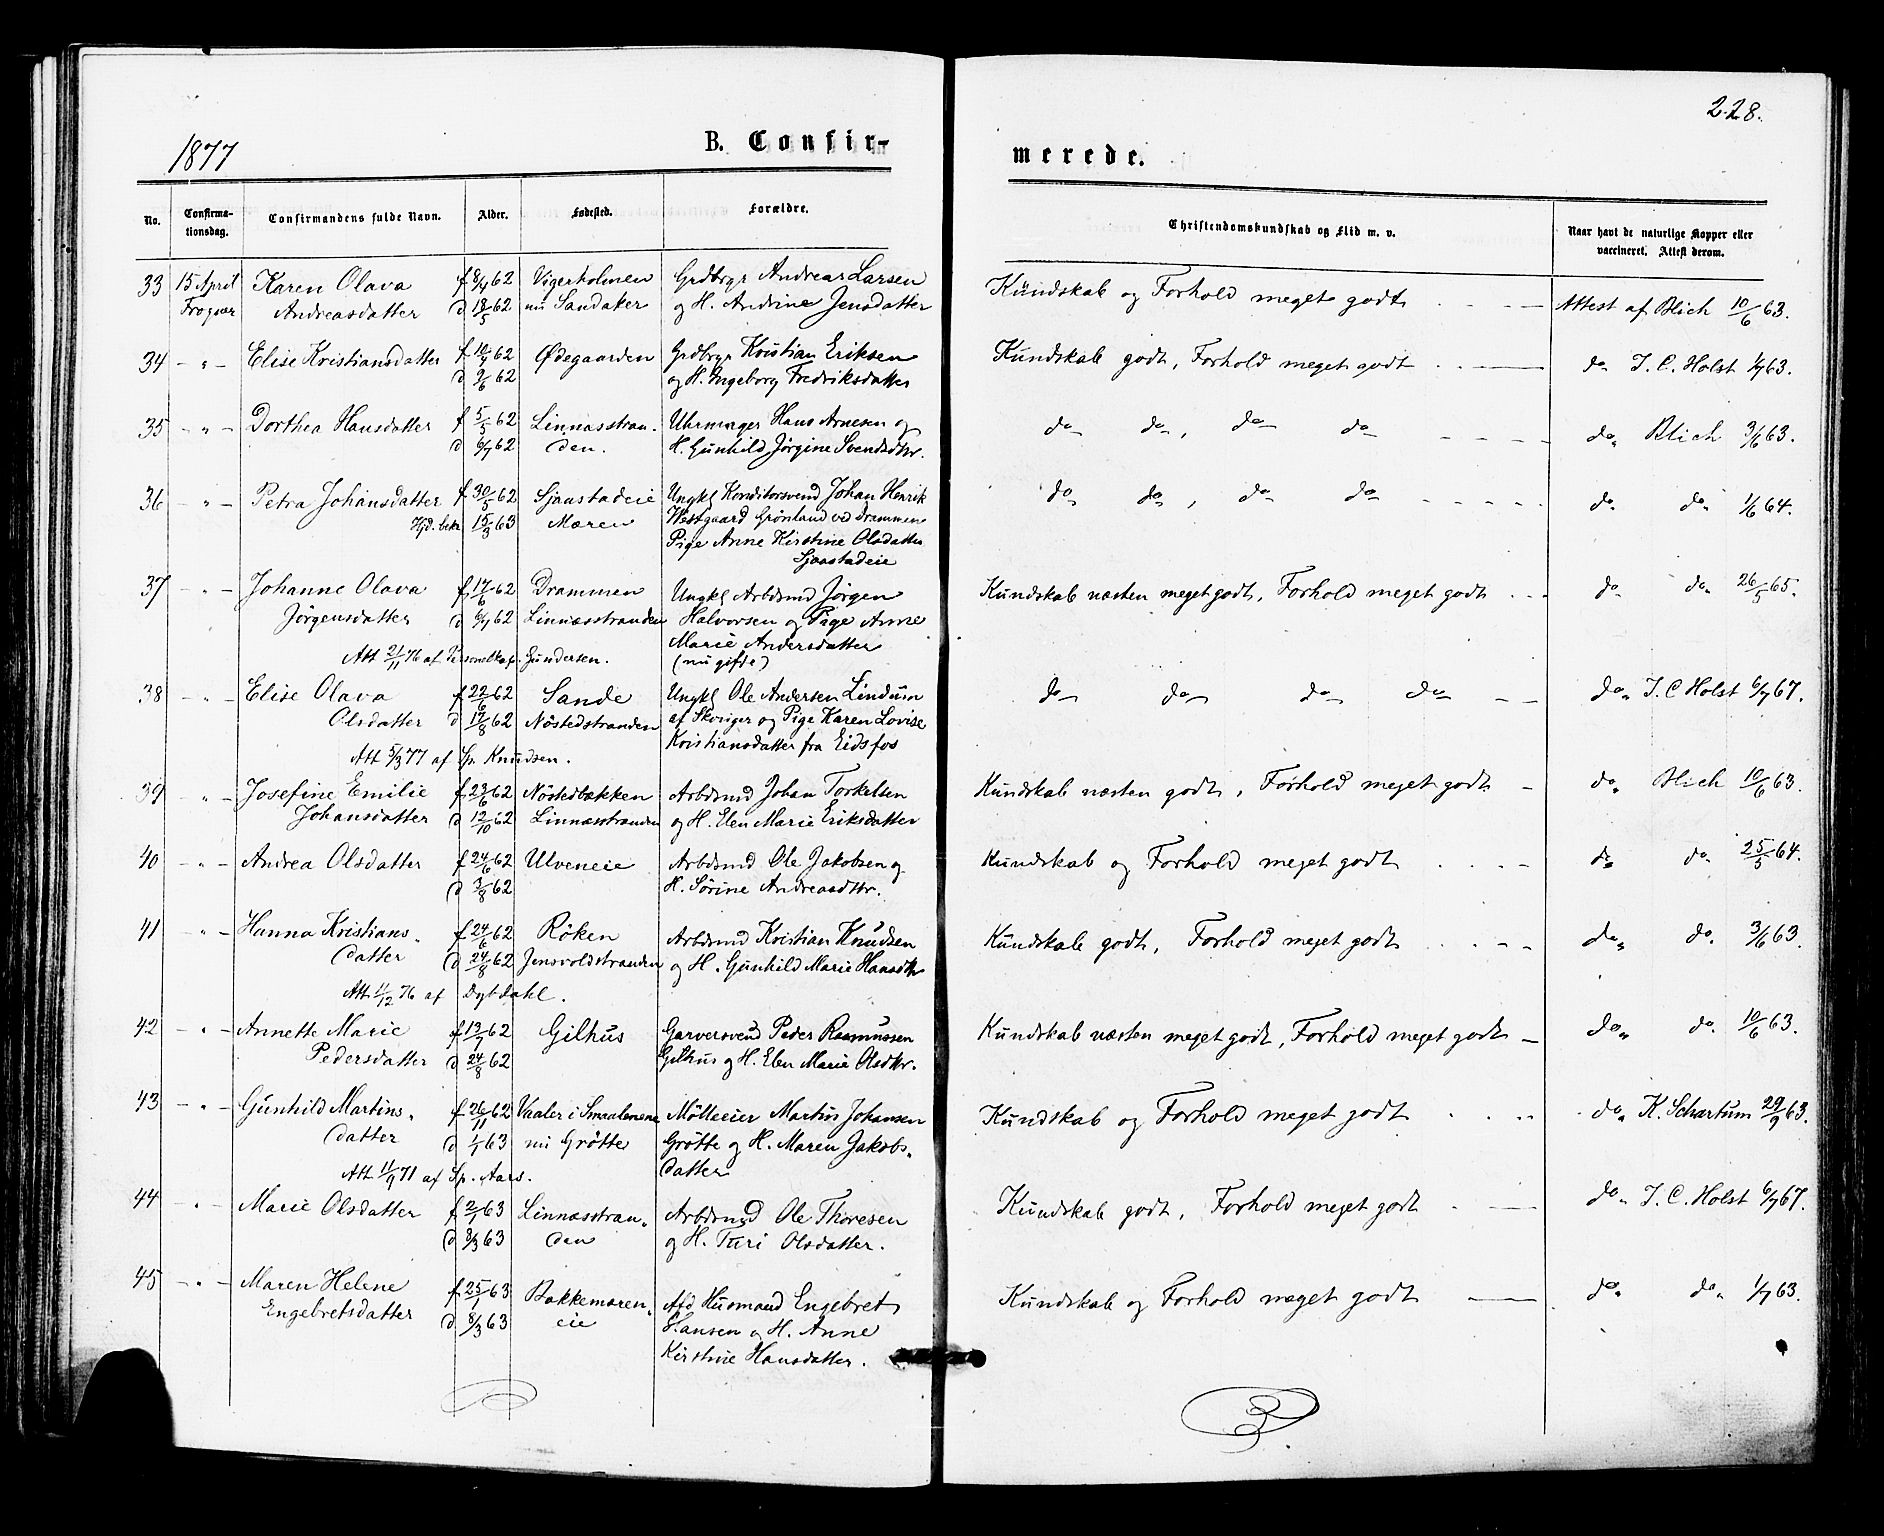 228.
1877
B. Confir-
merede.
No.
Confirma-
tionsdag.
Confirmandens fulde Navn.
Alder.
Fødested.
Forældre.
Christendomskundskab og Flid m. v.
Naar havt de naturlige Kopper eller
vaccineret. Attest derom.
33 15 April Karen Olava f 8/4 62 Vigerholmen Grdbrgr Andreas Larsen Kundskab og Forhold meget godt Attest af Blich 10/6 63.
Frogner Andreasdatter d 18/5 62 nu Sandaker og H. Andrine Jensdatter
34 - " - Elise Kristiansdatter f 10/4 62 Ødegaarden Grdbrgr Kristian Eriksen Kundskab godt, Forhold meget godt do I. C. Holst 1/7 63.
d 9/6 62 og H. Ingeborg Fredriksdatter
35 - " - Dorthea Hansdatter f 5/5 62 Linnæsstran- Uhrmager Hans Arnesen og do do, do do do, Blich 3/6 63.
d 6/7 62 den. H. Gunhild Jørgine Svendsdtr.
36 - " - Petra Johansdatter f 30/5 62 Sjaastadeie Ungkl Konditorsvend Johan Henrik do do, do do do. do. 1/6 64.
Hjd. bekr 15/3 63 Mæren Westgaard Grønland ved Drammen
Pige Anne Kirstine Olsdatter
Sjaastadeie
37 - " - Johanne Olava f 17/6 62 Drammen Ungkl Arbdsmd Jørgen Kundskab næsten meget godt, Forhold meget godt do. do. 26/5 65.
Jørgensdatter d 6/7 62 Linnæsstranden Halvorsen og Pige Anne
Marie Andersdatter
Att 21/11 76 af Personelkap. Gundersen. (nu gifte)
38 - " - Elise Olava f 22/6 62 Sande Ungkl Ole Andersen Lindum do do do do do, I. C Holst 6/7 67.
Olsdatter d 17/8 62 Nøstedstranden af Skoger og Pige Karen Lovise
Kristiansdatter fra Eidsfos
Att 5/3 77 af Sp. Knudsen.
39 " - Josefine Emilie f 23/6 62 Nøstedbækken Arbdsmd Johan Torkelsen Kundskab næsten godt, Forhold meget godt do, Blich 10/6 63.
Johansdatter d 12/10 62 Linnæsstranden og H. Elen Marie Eriksdatter
40 - " - Andrea Olsdatter f 24/6 62 Ulveneie Arbdsmd Ole Jakobsen og Kundskab og Forhold meget godt do do. 25/5 64.
d 3/8 62 H. Sørine Andreasdtr.
41 - " - Hanna Kristians- f 24/6 62 Røken Arbdsmd Kristian Knudsen Kundskab godt, Forhold meget godt do, do. 3/6 63.
datter d 24/8 62 Jensvoldstranden og H. Gunhild Marie Hansdtr
Att 11/12 76 af Dybdahl.
42 - " - Annette Marie f 13/7 62 Gilhus Garversvend Peder Rasmussen Kundskab næsten meget godt, Forhold meget godt do, do. 10/6 63.
Pedersdatter d 24/8 62 Gilhus og H. Elen Marie Olsdtr.
43 - " - Gunhild Martins- f 26/11 62 Vaaler i Smaalenene Mølleeier Martin Johansen Kundskab og Forhold meget godt do, K. Schartum 29/9 63.
datter d 1/1 63 nu Grøtte Grøtte og H. Maren Jakobs-
datter
Att 11/9 71 af Sp. Aars.
44 - " - Marie Olsdatter f 2/1 63 Linnæsstran- Arbdsmd Ole Thoresen Kundskab godt, Forhold meget godt do, I. C. Holst 6/7 67.
d 8/3 63 den og H. Turi Olsdatter.
45 - " - Maren Helene f 25/1 63 Bakkemæren- Afd Husmand Engebret Kundskab og Forhold meget godt do, do, 1/7 63.
Engebretsdatter d 8/3 63 eie Hansen og H. Anne
Kirstine Hansdatter.